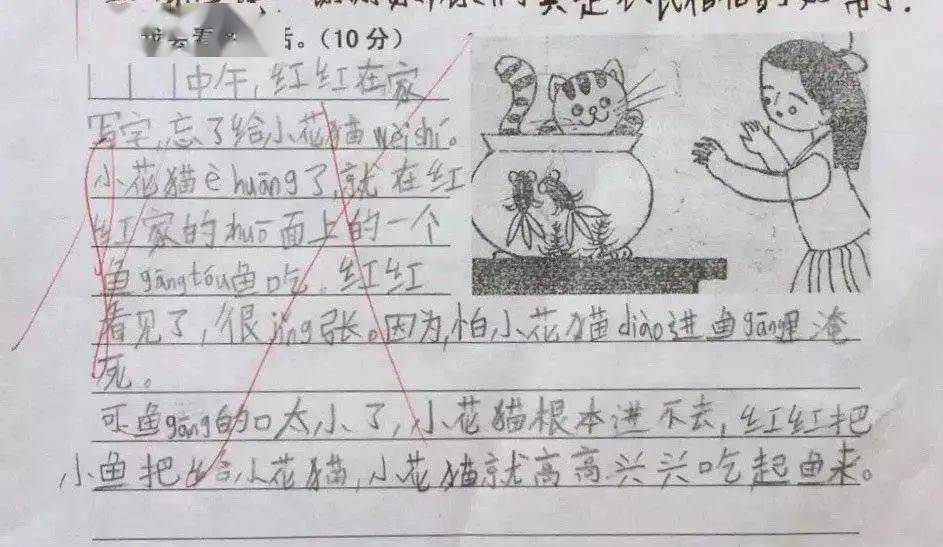 话。(10分)
中午,红红在家
写字,忘了给小花猫wèi shí。
小花猫è huāng了,就在红
红家的zhuō面上的一个
鱼gāng tóu鱼吃。红红
看见了,很jǐng张。因为,怕小花猫diào进鱼gāng里淹
死。
可鱼gāng的口太小了,小花猫根本进不去,红红把
小鱼把给小花猫,小花猫就高高兴兴吃起鱼来。